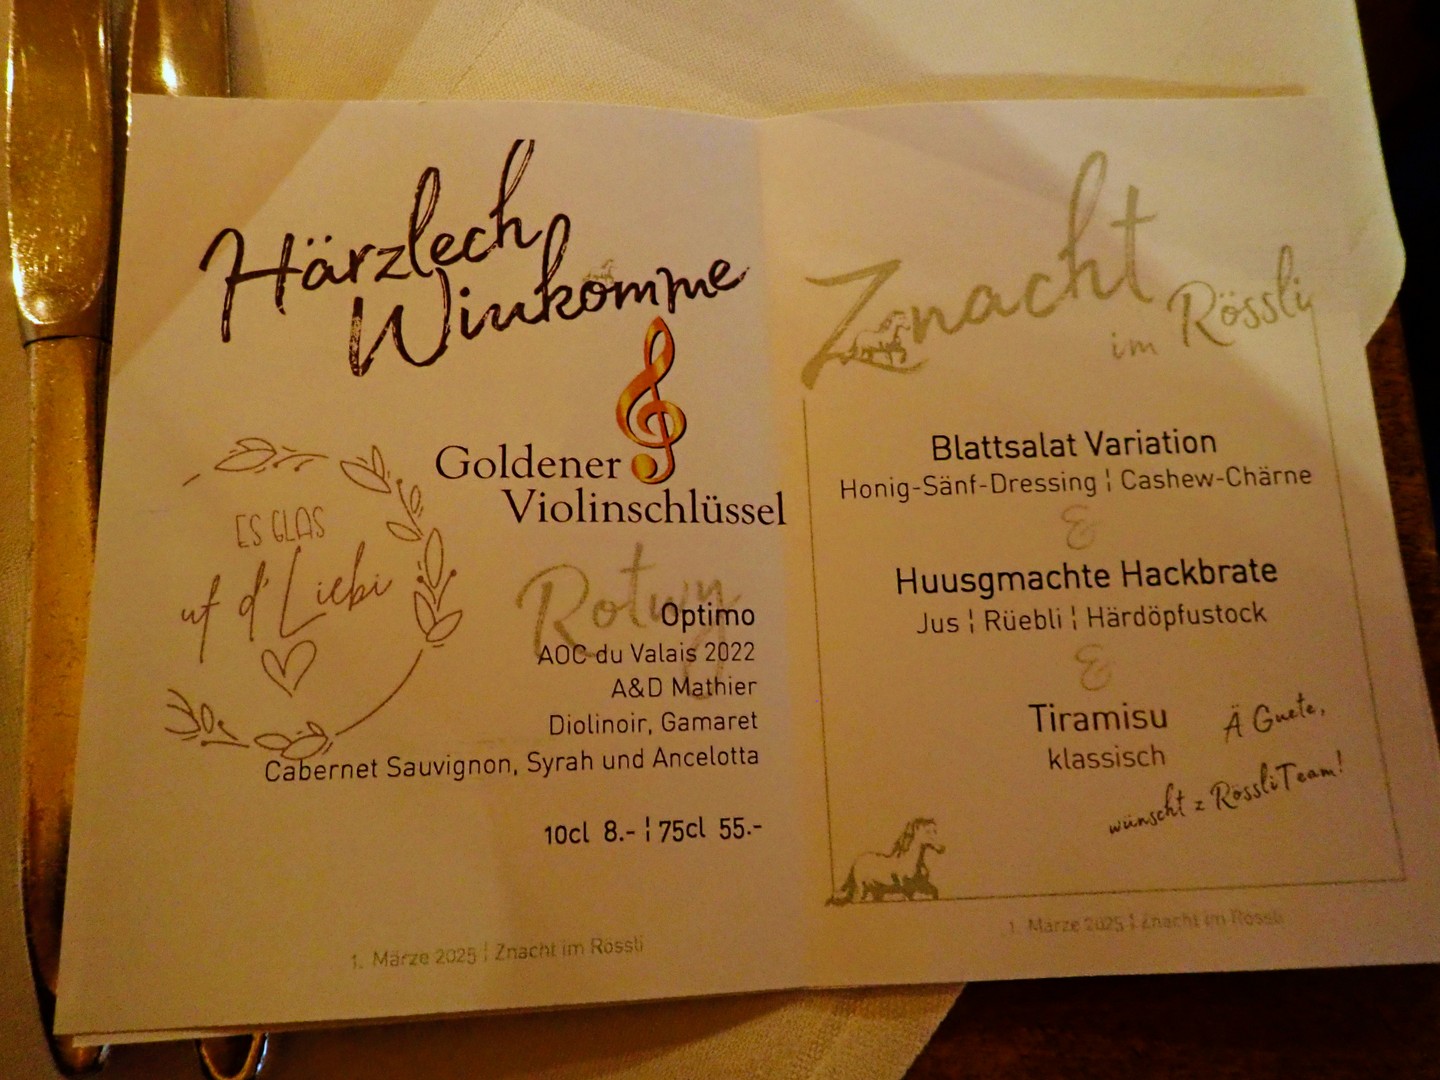 Härzlech
Wiukomme
Goldener
Violinschlüssel
ES GLAS
uf d' Liebi
Rotwy
Optimo
AOC du Valais 2022
A&D Mathier
Diolinoir, Gamaret
Cabernet Sauvignon, Syrah und Ancelotta
10cl 8.- ¦ 75cl 55.-
1. Märze 2025 ¦ Znacht im Rössli
Znacht
im Rössli
Blattsalat Variation
Honig-Sänf-Dressing ¦ Cashew-Chärne
&
Huusgmachte Hackbrate
Jus ¦ Rüebli ¦ Härdöpfustock
&
Tiramisu
klassisch
Ä Guete,
wünscht z RössliTeam!
1. Märze 2025 ¦ Znacht im Rössli